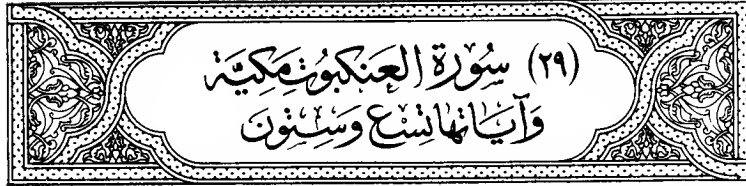 (٢٩) سُورَة العَنكبوتِ مَكيَّة
وَآيَاتهَا تِسْع وَسِتون